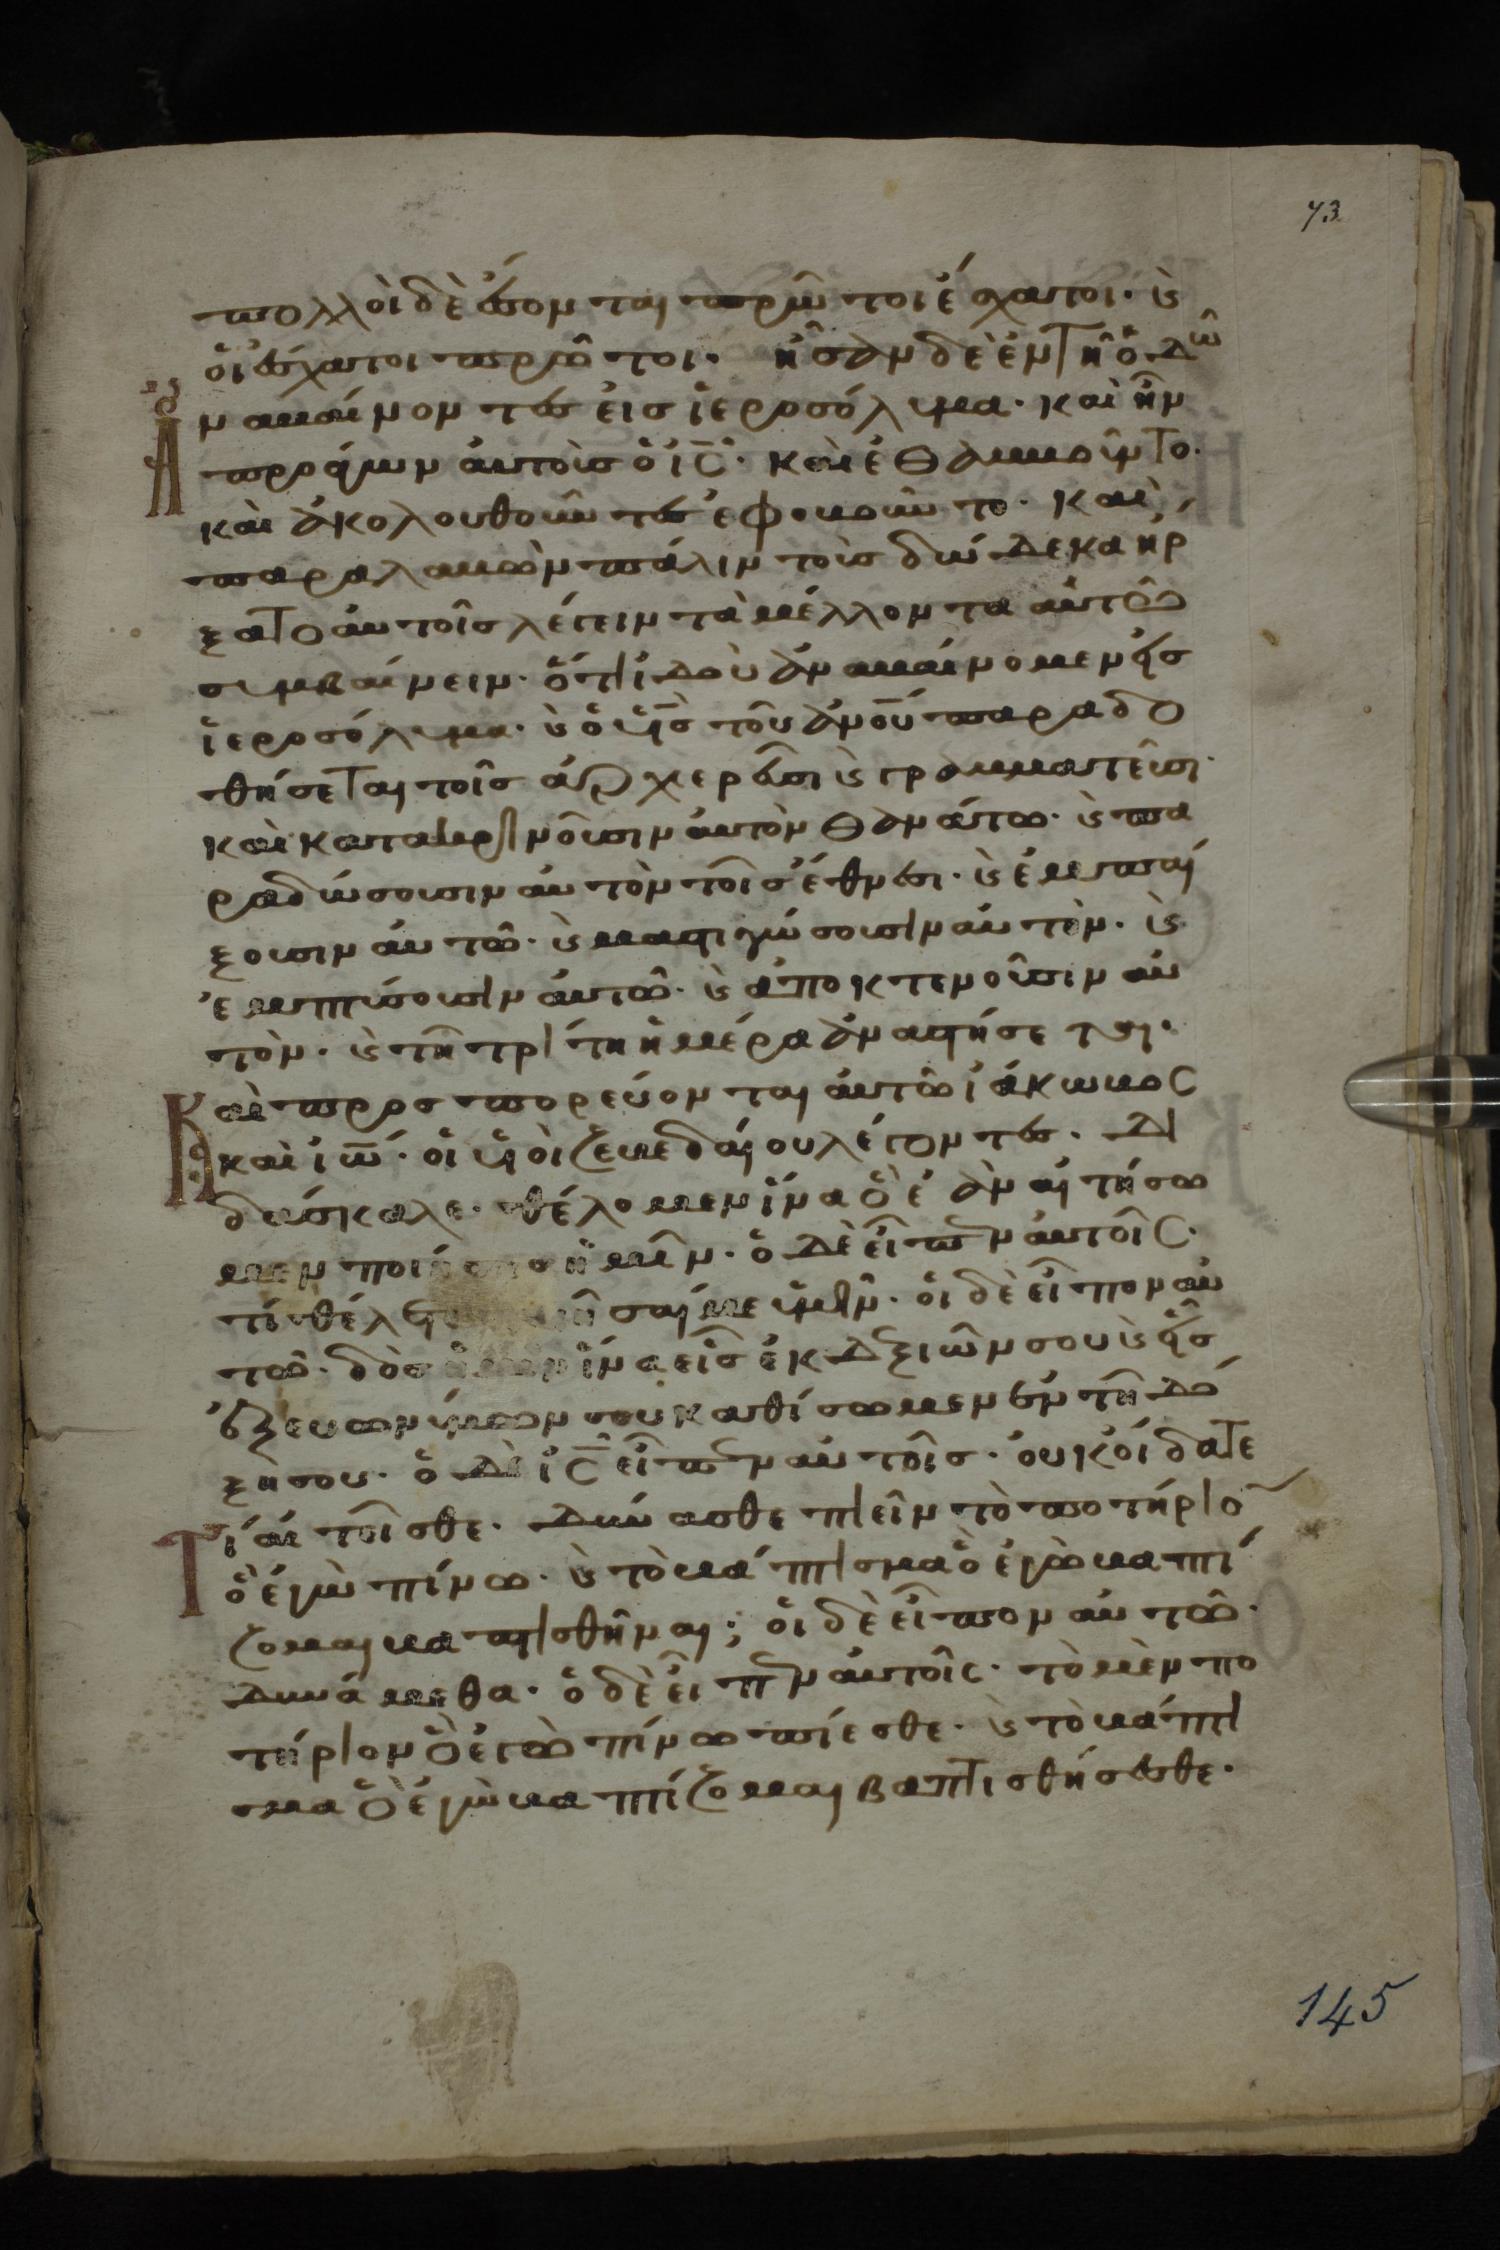 73
πολλοὶ δὲ ἔσονται πρῶτοι ἔσχατοι· ϗ
οἱ ἔσχατοι πρῶτοι· ἦσαν δὲ ἐν τῆ ὁδῶ
ἀναβαίνοντες εἰς ἱεροσόλυμα· καὶ ἦν
προάγων αὐτοὺς ὁ ις· καὶ ἐθαμβοῦντο·
καὶ ἀκολουθοῦντες ἐφοβοῦντο· καὶ
παραλαβὼν πάλιν τοὺς δώδεκα ἤρ
ξατο αὐτοῖς λέγειν τὰ μέλλοντα αὐτῶ
συμβαίνειν· ὅτι ἰδοὺ ἀναβαίνομεν εἰς
ἱεροσόλυμα· ϗ ὁ υἱὸς τοῦ ανου παραδο
θήσεται τοῖς ἀρχιερεῦσι ϗ γραμματεῦσι·
καὶ κατακρινοῦσιν αὐτὸν θανάτω· ϗ πα
ραδώσουσιν αὐτὸν τοῖς ἔθνεσι· ϗ ἐμπαί
ξουσιν αὐτῶ· ϗ μαστιγώσουσιν αὐτὸν· ϗ
ἐμπτύσουσιν αὐτῶ· ϗ ἀποκτενοῦσιν αὐ
τὸν· ϗ τῆ τρίτη ἡμέρα ἀναστήσεται·
Καὶ προσπορεύονται αὐτῶ ἰάκωβος
καὶ ιω· οἱ υἱοὶ ζεβεδαίου λέγοντες· Δι
δάσκαλε· θέλομεν ἵνα ὃ ἐὰν αἰτήσω
μεν ποιήσης ἡμῖν· ὁ δὲ εἶπεν αὐτοῖς·
τί θέλετε σαί με ὑμῖν· οἱ δὲ εἶπον αὐ
τῶ· δὸς ἡμῖν ἵνα εἷς ἐκ δεξιῶν σου ϗ εἷς
ἐξ εὐωνύμων σου καθίσωμεν ἐν τῆ δό
ξη σου· ὁ δὲ ις εἶπεν αὐτοῖς· οὐκ οἴδατε
Τί αἰτεῖσθε· δύνασθε πιεῖν τὸ ποτήριον
ὃ ἐγὼ πίνω· ϗ τὸ βάπτισμα ὃ ἐγὼ βαπτί
ζομαι βαπτισθῆναι; οἱ δὲ εἶπον αὐτῶ·
δυνάμεθα· ὁ δὲ εἶπεν αὐτοῖς· τὸ μὲν πο
τήριον ὃ ἐγὼ πίνω πίεσθε· ϗ τὸ βάπτι
σμα ὃ ἐγὼ βαπτίζομαι βαπτισθήσεσθε·
145